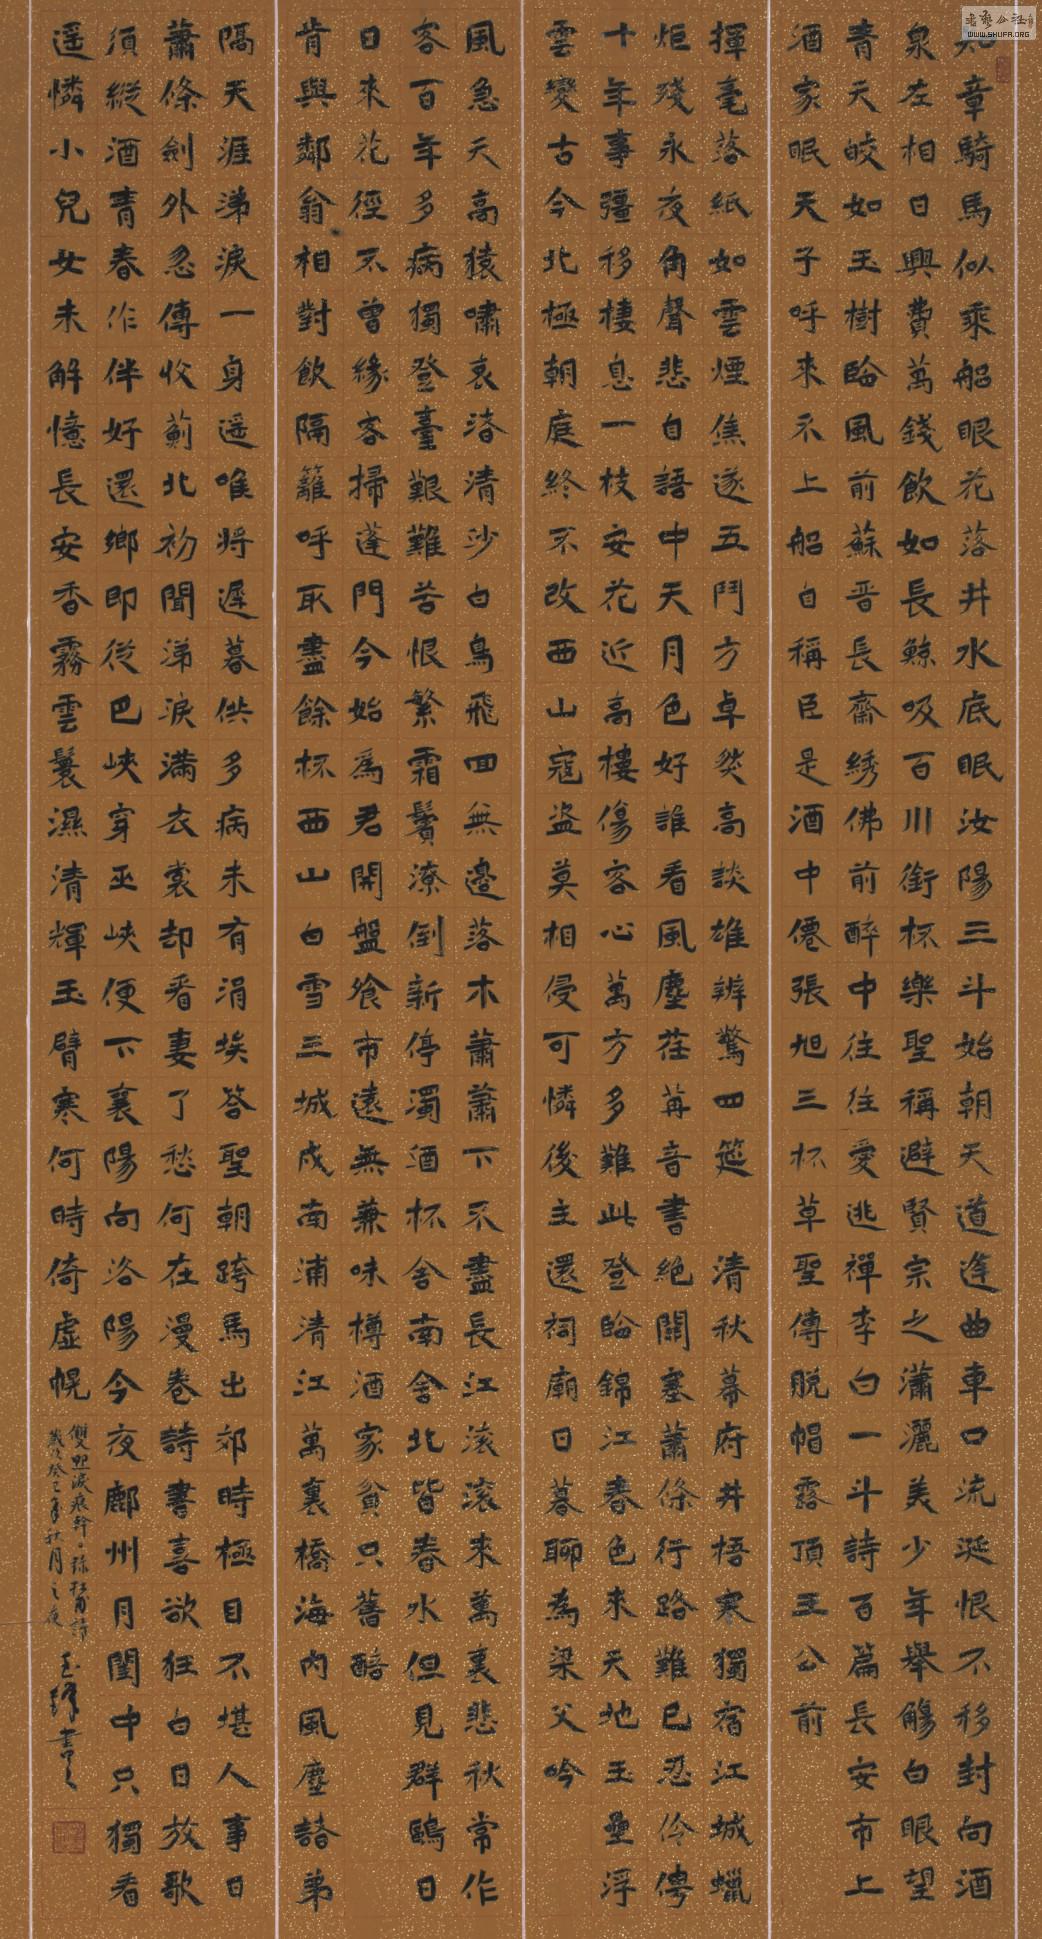 知章騎馬似乘船眼花落井水底眠汝陽三斗始朝天道逢曲車口流涎恨不移封向酒
泉左相日興費萬錢飲如長鯨吸百川銜杯樂聖稱避賢宗之瀟灑美少年舉觴白眼望
青天皎如玉樹臨風前蘇晉長齋綉佛前醉中往往愛逃禪李白一斗詩百篇長安市上
酒家眠天子呼來不上船自稱臣是酒中僊張旭三杯草聖傳脫帽露頂王公前
揮毫落紙如雲煙焦遂五鬥方卓然高談雄辨驚四筵 清秋幕府井梧寒獨宿江城蠟
炬殘永夜角聲悲自語中天月色好誰看風塵荏苒音書絕關塞蕭條行路難已忍伶俜
十年事彊移棲息一枝安花近高樓傷客心萬方多難此登臨錦江春色來天地玉壘浮
雲變古今北極朝庭終不改西山寇盜莫相侵可憐後主還祠廟日暮聊為梁父吟
風急天高猿嘯哀渚清沙白鳥飛回無邊落木蕭蕭下不盡長江滾滾來萬裏悲秋常作
客百年多病獨登臺艱難苦恨繁霜鬢潦倒新停濁酒杯舍南舍北皆春水但見群鷗日
日來花徑不曾緣客掃蓬門今始為君開盤飧市遠無兼味樽酒家貧只舊醅
肯與鄰翁相對飲隔籬呼取盡餘杯西山白雪三城戍南浦清江萬裏橋海內風塵諸弟
隔天涯涕淚一身遥唯將遲暮供多病未有涓埃答聖朝跨馬出郊時極目不堪人事日
蕭條劍外忽傳收薊北初聞涕淚滿衣裳却看妻了愁何在漫卷詩書喜欲狂白日放歌
須縱酒青春作伴好還鄉即從巴峽穿巫峽便下襄陽向洛陽今夜鄜州月閨中只獨看
遥憐小兒女未解憶長安香霧雲鬟濕清輝玉臂寒何時倚虛幌
雙照淚痕幹 錄杜甫詩
歲次癸巳年秋月之夜
書之
WWW.SHUFA.ORG